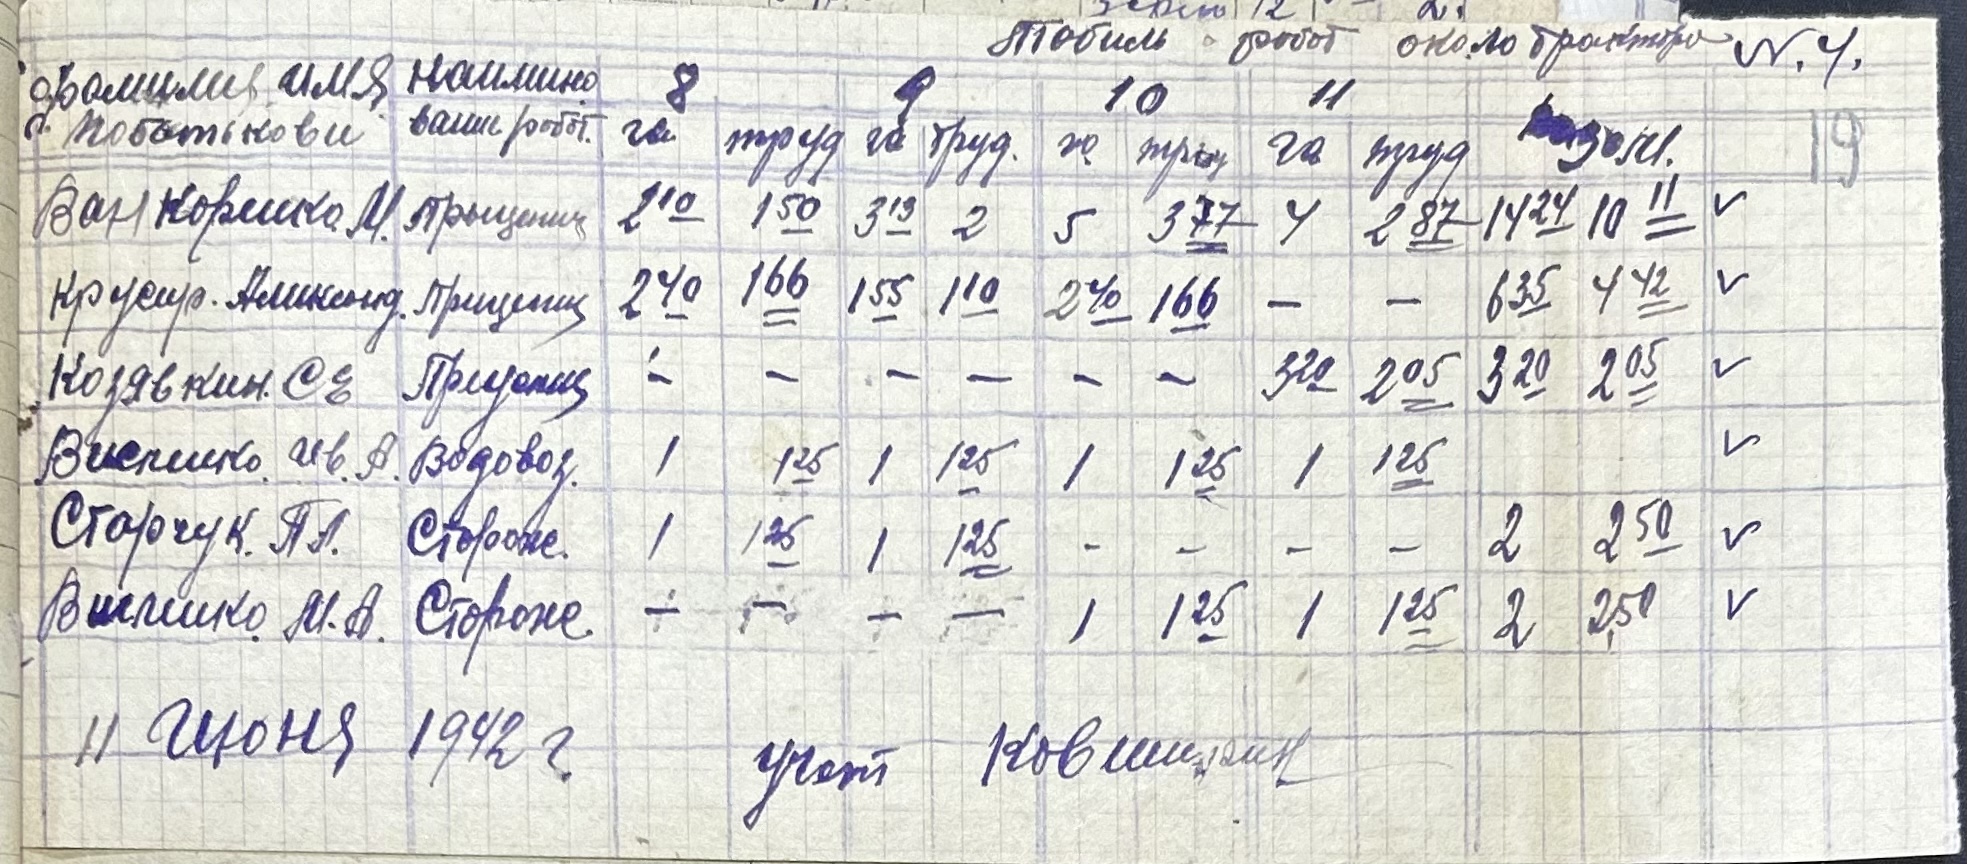 Табиль работ около трактора N. 4.
Фамилия имя Наимино 8 9 10 11
ваник робот. га труд га труд. га труд га труд 19
Ванковенко М. Прицепщ 2 10 1 50 3 19 2 5 3 77 4 2 87 14 24 10 11 ✓
Александ. Прицепщ 2 40 1 66 1 55 1 10 2 40 1 66 – – 6 35 4 42 ✓
Козявкин. СЕ Прицепщ – – – – – – 3 20 2 05 3 20 2 05 ✓
Ив. А. Водовоз. 1 1 25 1 1 25 1 1 25 1 1 25 ✓
Старчук. Пл. Стороже. 1 1 25 1 1 25 – – – – 2 2 50 ✓
М. А. Стороже. – – – – 1 1 25 1 1 25 2 2,50 ✓
11 Июня 1942 г. учот